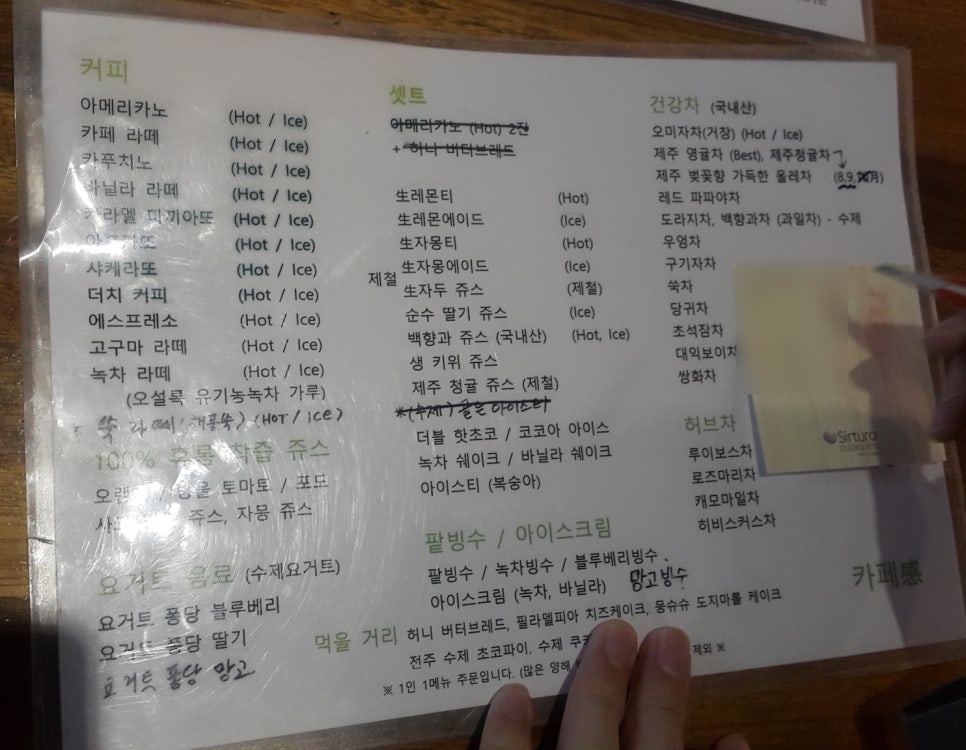 커피
아메리카노 (Hot / Ice)
카페 라떼 (Hot / Ice)
카푸치노 (Hot / Ice)
바닐라 라떼 (Hot / Ice)
카라멜 마끼아또 (Hot / Ice)
(Hot / Ice)
샤케라또 (Hot / Ice)
더치 커피 (Hot / Ice)
에스프레소 (Hot / Ice)
고구마 라떼 (Hot / Ice)
녹차 라떼 (Hot / Ice)
(오설록 유기농녹차 가루)
쑥 라떼(해풍쑥) (HOT / ICE)
100% 휴롬 착즙 쥬스
토마토 / 포도
쥬스, 자몽 쥬스
요거트 음료 (수제요거트)
요거트 퐁당 블루베리
요거트 퐁당 딸기
요거트 퐁당 망고
셋트
아메리카노 (Hot) 2잔
+ 허니 버터브레드
生레몬티 (Hot)
生레몬에이드 (Ice)
生자몽티 (Hot)
生자몽에이드 (Ice)
제철 生자두 쥬스 (제철)
순수 딸기 쥬스 (Ice)
백향과 쥬스 (국내산) (Hot, Ice)
생 키위 쥬스
제주 청귤 쥬스 (제철)
*(수제) 아이스티
더블 핫초코 / 코코아 아이스
녹차 쉐이크 / 바닐라 쉐이크
아이스티 (복숭아)
팥빙수 / 아이스크림
팥빙수 / 녹차빙수 / 블루베리빙수
아이스크림 (녹차, 바닐라) 망고빙수
먹을 거리 허니 버터브레드, 필라델피아 치즈케이크, 몽슈슈 도지마롤 케이크
전주 수제 초코파이, 수제 쿠키
제외 ※
※ 1인 1메뉴 주문입니다. (많은 양해
건강차 (국내산)
오미자차(거창) (Hot / Ice)
제주 영귤차 (Best), 제주청귤차
제주 벚꽃향 가득한 올레차 (8,9,
레드 파파야차
도라지차, 백향과차 (과일차) - 수제
우엉차
구기자차
쑥차
당귀차
초석잠차
대익보이차
쌍화차
허브차
루이보스차
로즈마리차
캐모마일차
히비스커스차
Sirturo
카페感